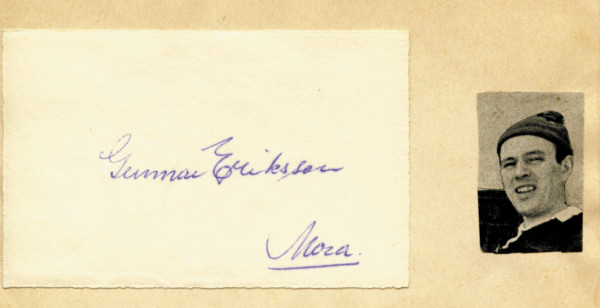 Gunnar Eriksson
Mora.